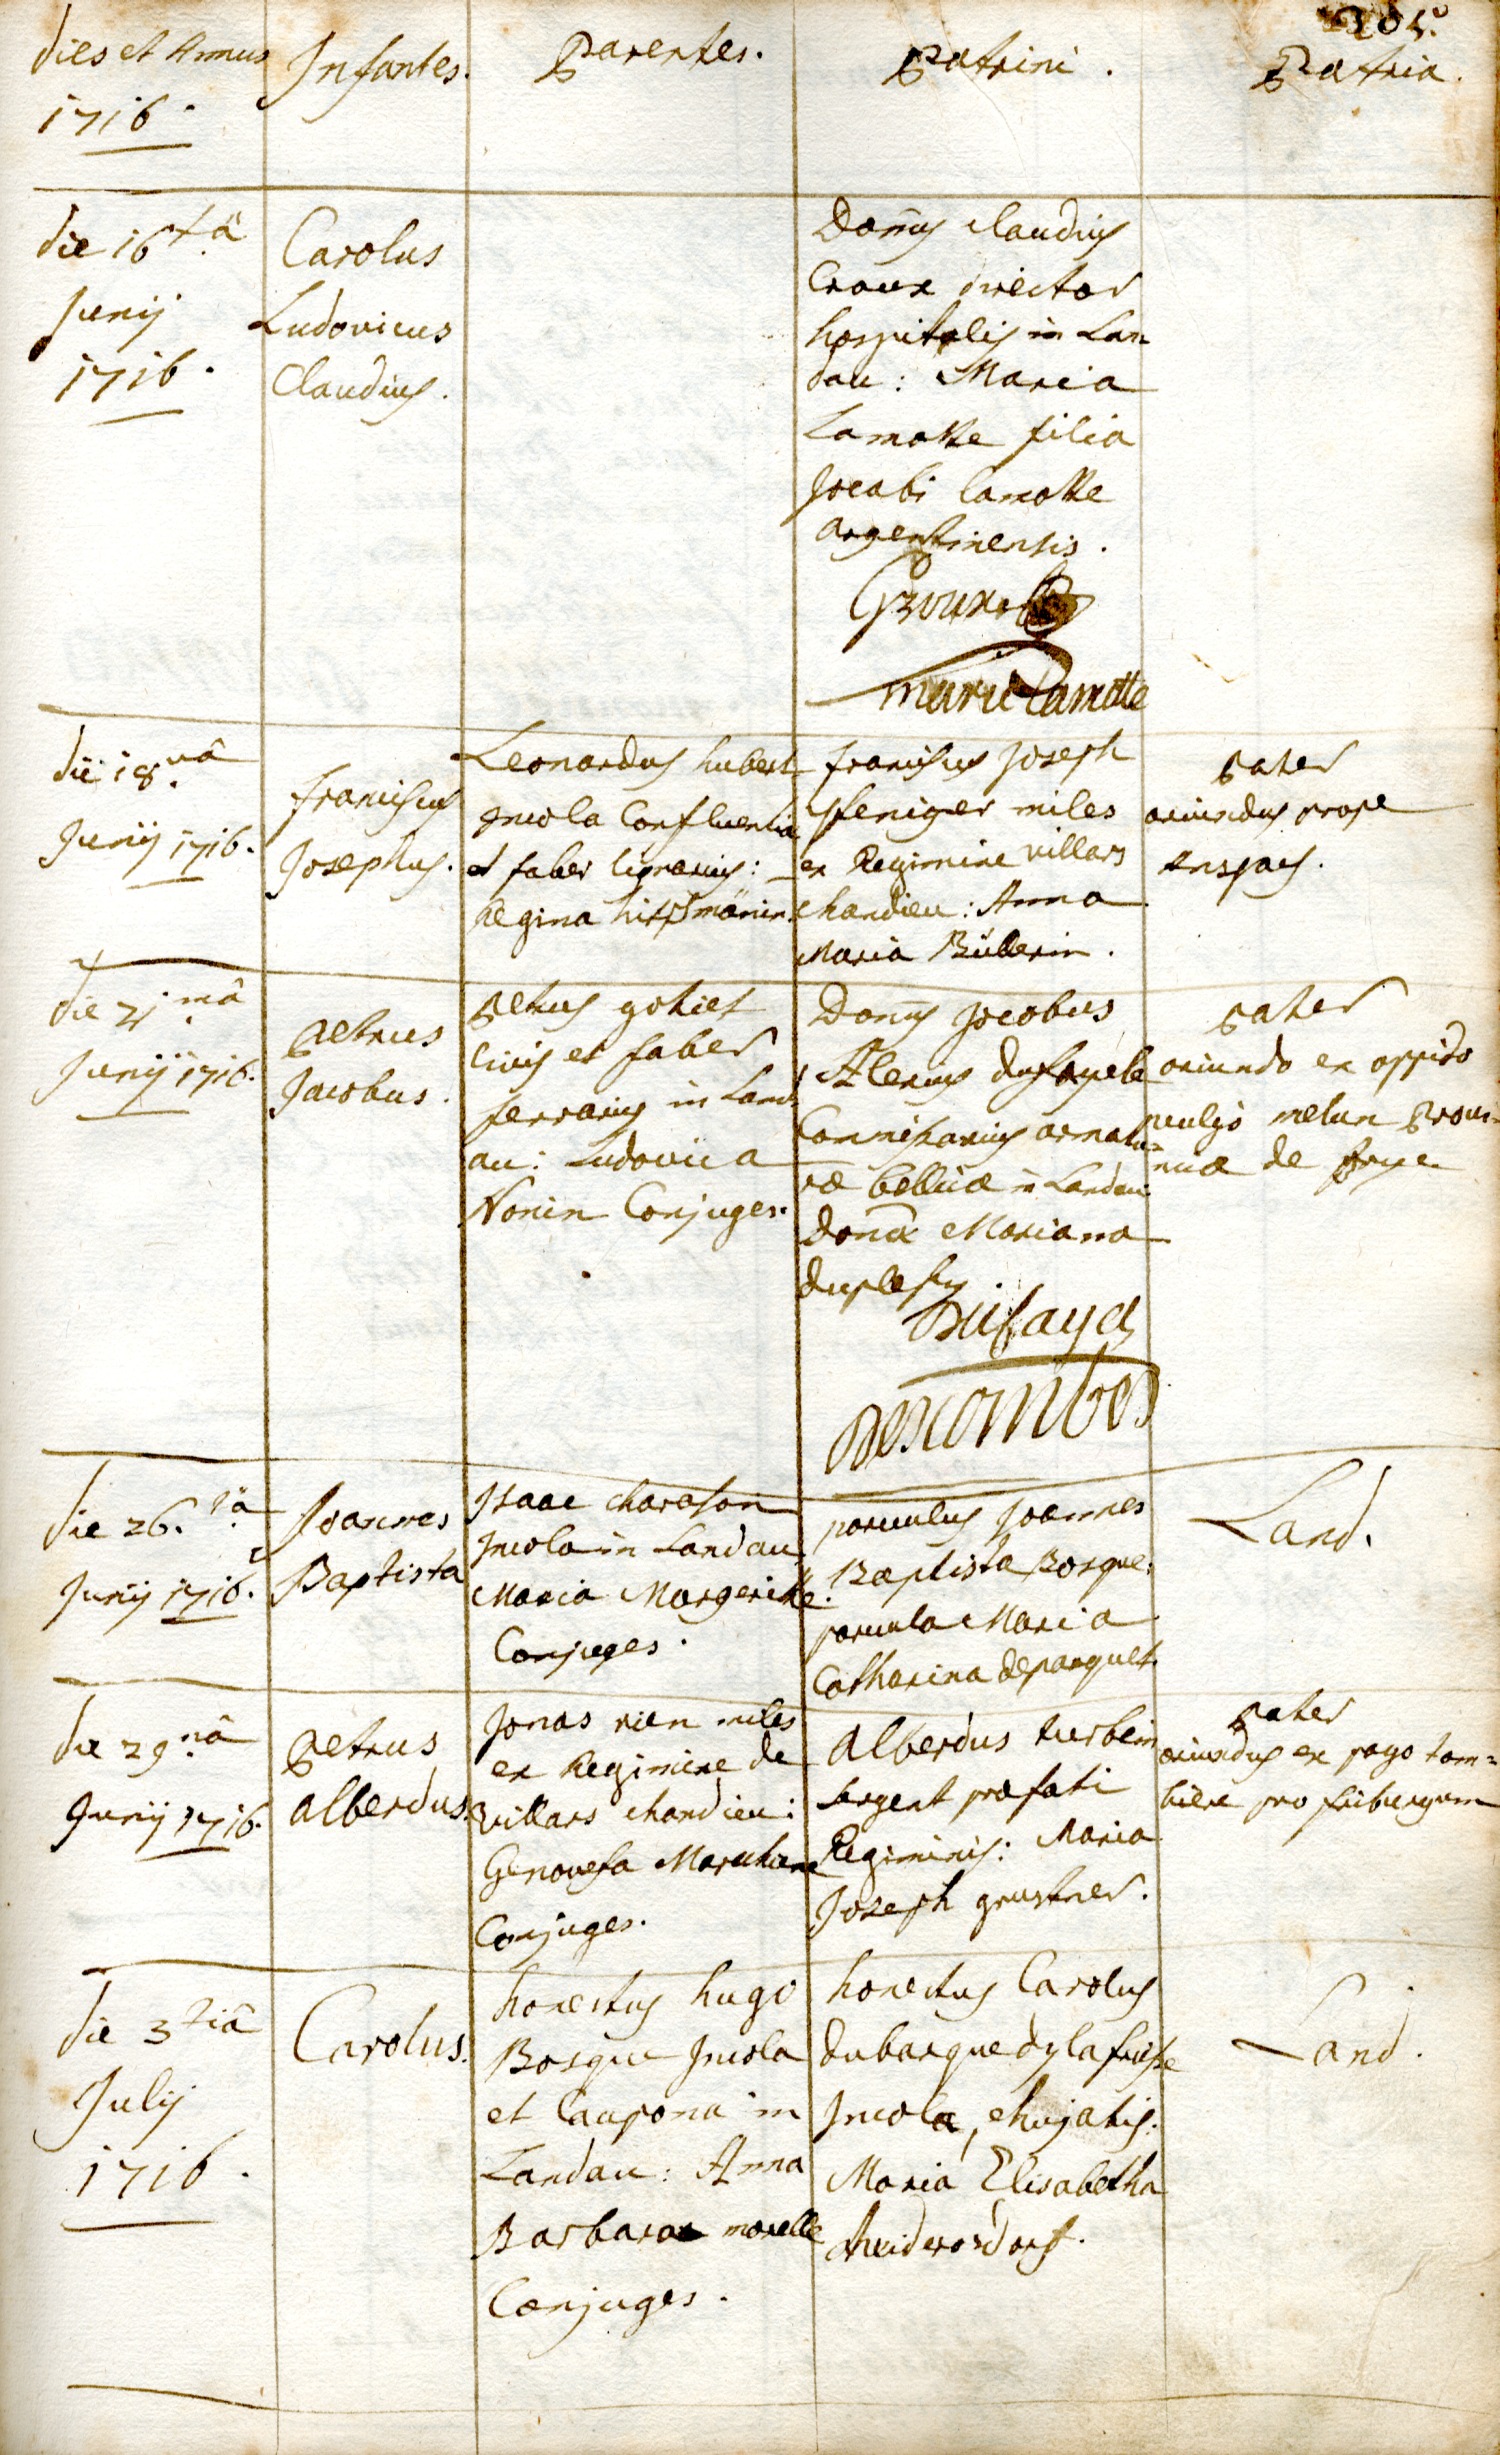 305.
dies et Annus
1716.
Infantes.
Parentes.
Patrini.
Patria.
die 16tâ
Junij
1716.
Carolus
Ludovicus
Claudius.
Domus Claudius
Croux director
hospitalis in Lan=
dau: Maria
Lamotte filia
Jocabi Lamotte
argentinensis.
Groux
marie Lamotte
die 18.vâ
Junij 1716.
Franciscus
Josephus.
Leonardus hubert
Incola Confluentia
et faber lignarius:
Regina
Franciscus Joseph
Pfeniger miles
ex Regimine villars
chandieu: Anna
Maria Büllerin.
Pater
oriundus prope
Anspach.
die 21.mâ
Junij 1716.
Petrus
Jacobus.
Petrus gohiet
Civis et faber
ferrarius in Land=
au: Ludovica
Nonin Conjuges.
Domus Jocobus
Alexius dufayele
Commissarius armatu=
ræ bellicæ in Landau
Dona Mariana
duplessy
Dufayel
Descombes
Pater
oriundo ex oppido
vulgo melun Provin=
ciæ de
die 26.tâ
Junij 1716.
Joannes
Baptista
Isaac charason
Incola in Landau
Maria Margeritte.
Conjuges.
parvulus Joannes
Baptista Bosque:
parvula Maria
Catharina deparquet.
Land.
die 29.nâ
Junij 1716.
Petrus
Alberdus.
Jonas rien miles
ex Regimine de
Villars chandieu:
Genovefa
Conjuges.
Alberdus turbein
sergent præfati
Regiminis: Maria
Joseph grustner.
Pater
oriundus ex pago tam=
biere pro friburgum
die 3tiâ
Julij
1716.
Carolus.
honestus hugo
Bosque Incola
et Caupona in
Landau: Anna
Barbara morelle
Conjuges.
honestus Carolus
dubarque
Incola, ehujatis:
Maria Elisabetha
Land.